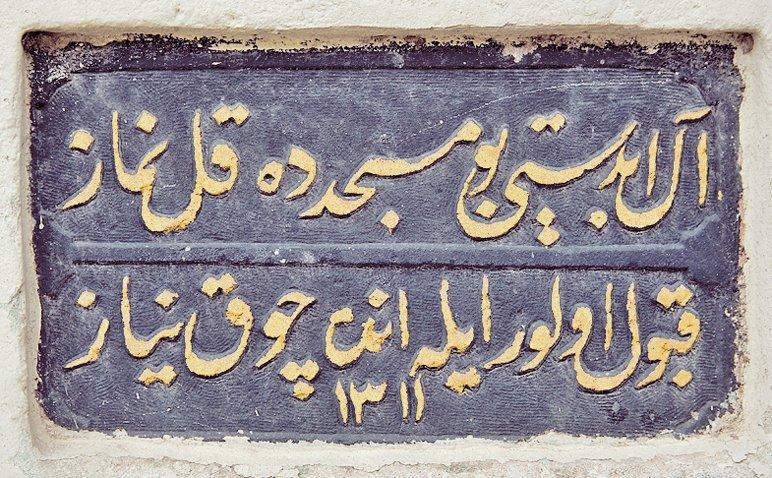 آل ابدستی بو مسجدده قل نماز
قبول اولور ایله اندن چوق نیاز
١٣١١